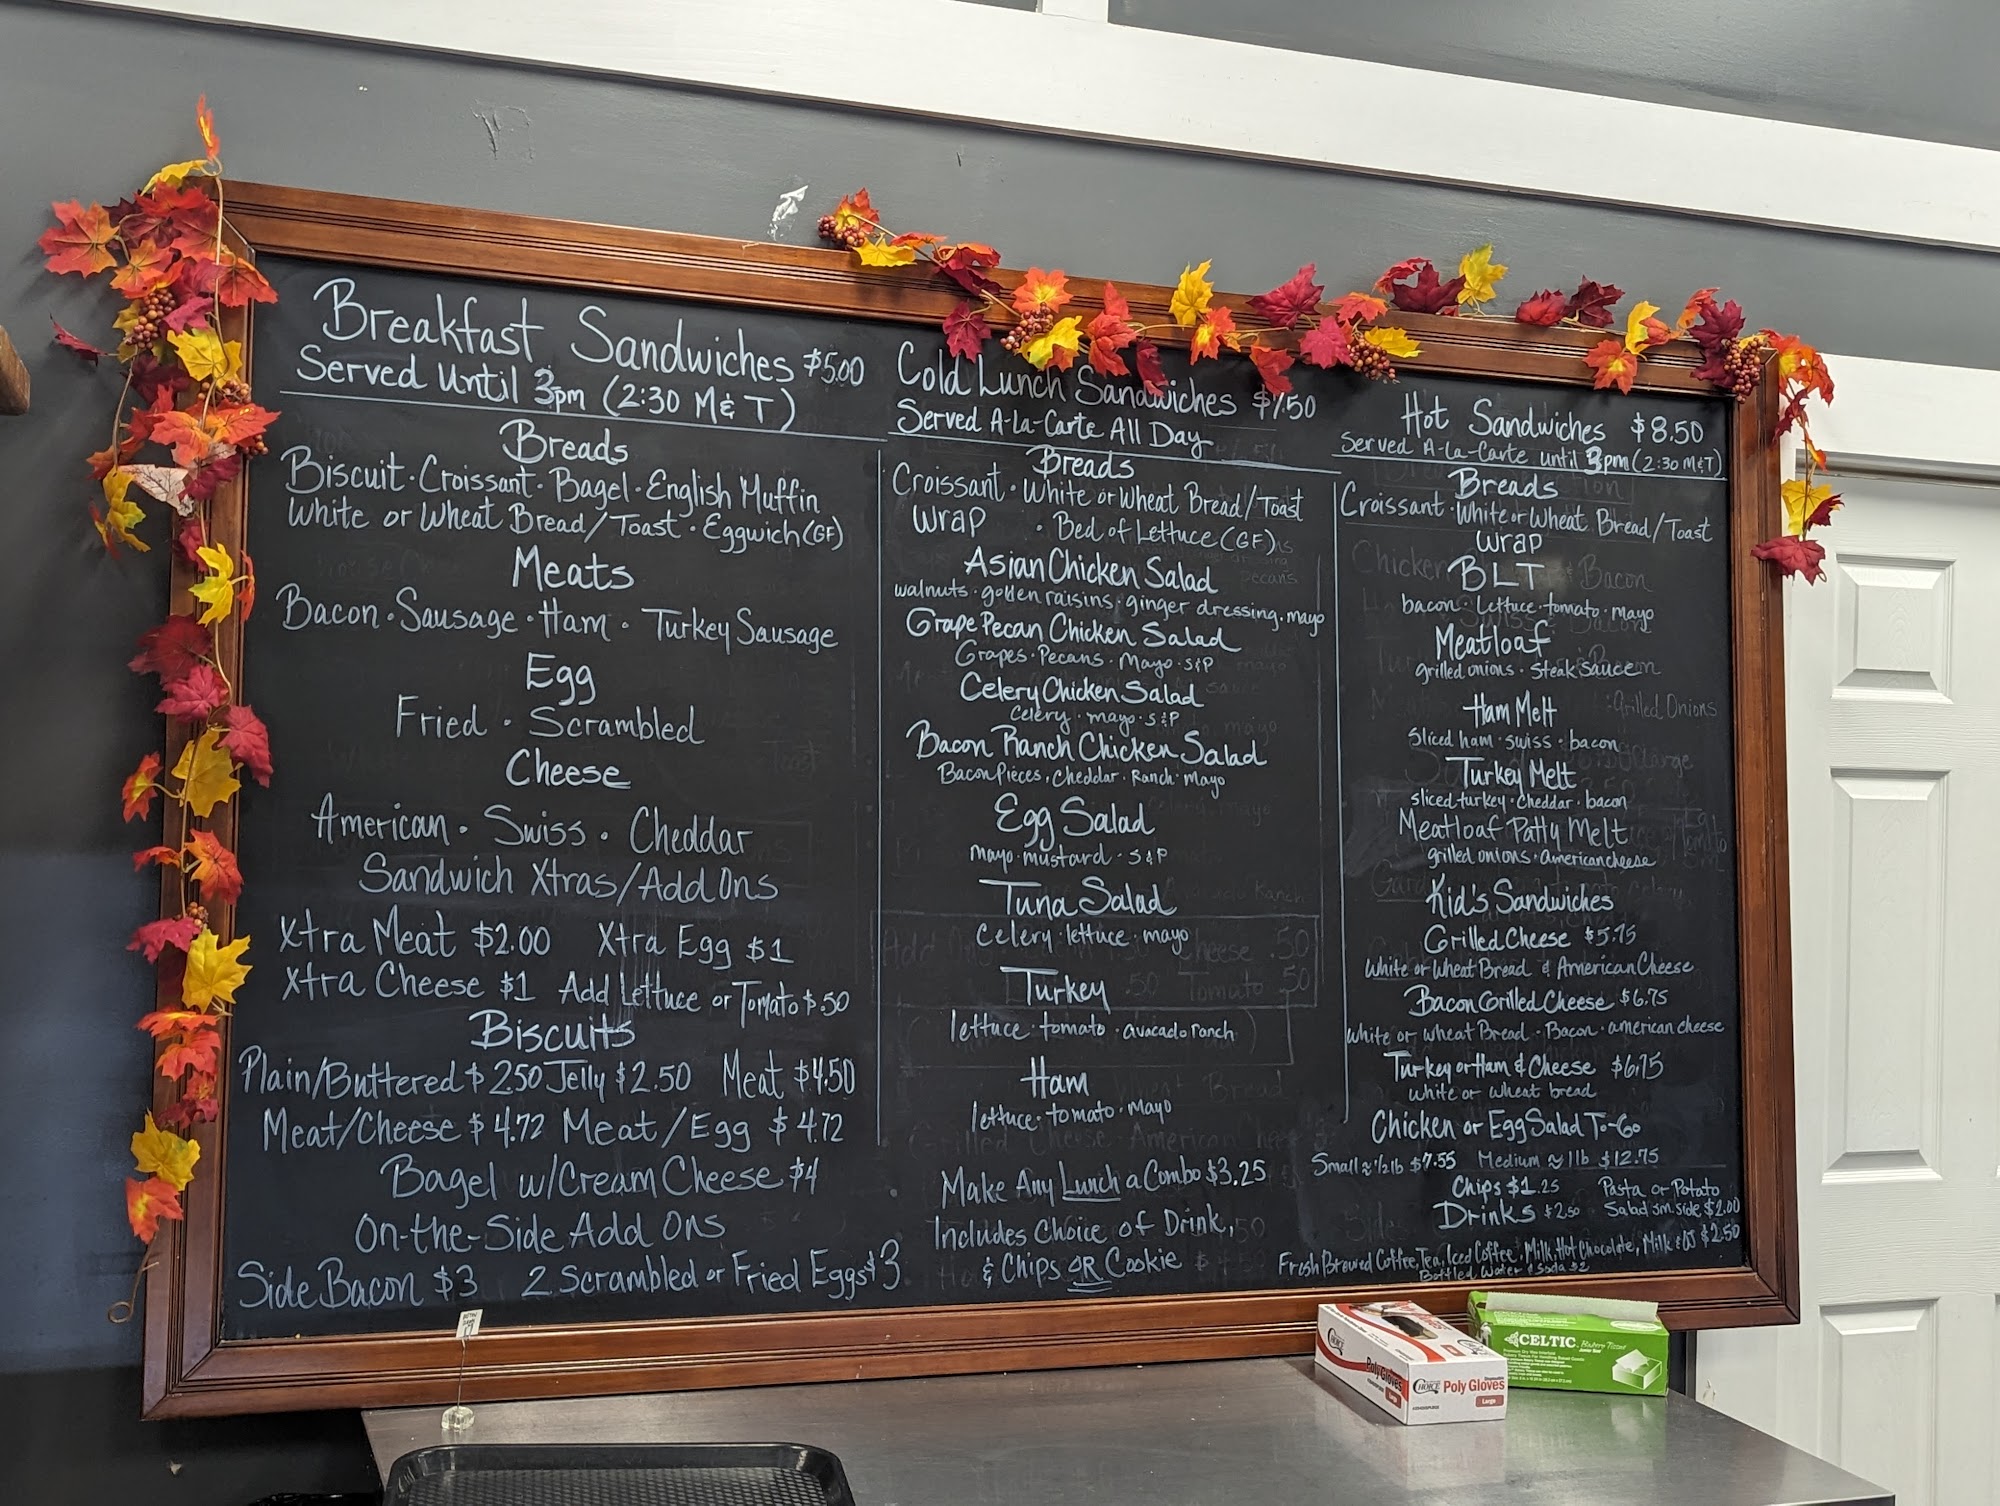 Breakfast Sandwiches $5.00
Served Until 3pm (2:30 M&T)
Breads
Biscuit · Croissant · Bagel · English Muffin
White or Wheat Bread/Toast · Eggwich (GF)
Meats
Bacon · Sausage · Ham · Turkey Sausage
Egg
Fried · Scrambled
Cheese
American · Swiss · Cheddar
Sandwich Xtras/Add Ons
Xtra Meat $2.00 Xtra Egg $1
Xtra Cheese $1 Add Lettuce or Tomato $.50
Biscuits
Plain/Buttered $2.50 Jelly $2.50 Meat $4.50
Meat/Cheese $4.72 Meat/Egg $4.72
Bagel w/Cream Cheese $4
On-the-Side Add Ons
Side Bacon $3 2 Scrambled or Fried Eggs $3
Cold Lunch Sandwiches $7.50
Served A-la-Carte All Day
Breads
Croissant · White or Wheat Bread/Toast
Wrap · Bed of Lettuce (GF)
Asian Chicken Salad
walnuts · golden raisins · ginger dressing · mayo
Grape Pecan Chicken Salad
Grapes · Pecans · Mayo · S&P
Celery Chicken Salad
Celery · mayo · S&P
Bacon Ranch Chicken Salad
Bacon Pieces · Cheddar · Ranch · Mayo
Egg Salad
mayo · mustard · S&P
Tuna Salad
Celery · lettuce · mayo
Turkey
lettuce · tomato · avacado ranch
Ham
lettuce · tomato · mayo
Make Any Lunch a Combo $3.25
Includes Choice of Drink,
& Chips OR Cookie
Hot Sandwiches $8.50
Served A-La-Carte until 3pm (2:30 M&T)
Breads
Croissant · White or Wheat Bread/Toast
Wrap
BLT
bacon · Lettuce · tomato · mayo
Meatloaf
grilled onions · Steak Sauce
Ham Melt
Sliced ham · swiss · bacon
Turkey Melt
sliced turkey · cheddar · bacon
Meatloaf Patty Melt
grilled onions · american cheese
Kid's Sandwiches
Grilled Cheese $5.75
White or Wheat Bread & American Cheese
Bacon Grilled Cheese $6.75
white or wheat Bread · Bacon · american cheese
Turkey or Ham & Cheese $6.75
White or Wheat bread
Chicken or Egg Salad To-Go
Small ≈ 1/2 lb $7.55 Medium ≈ 1 lb $12.75
Chips $1.25 Pasta or Potato
Drinks $2.50 Salad sm. side $2.00
Fresh Brewed Coffee, Tea, Iced Coffee, Milk, Hot Chocolate, Milk & OJ $2.50
Bottled Water & Soda $2
CHOICE Poly Gloves
Poly Gloves
Large
CELTIC Bakery Tissue